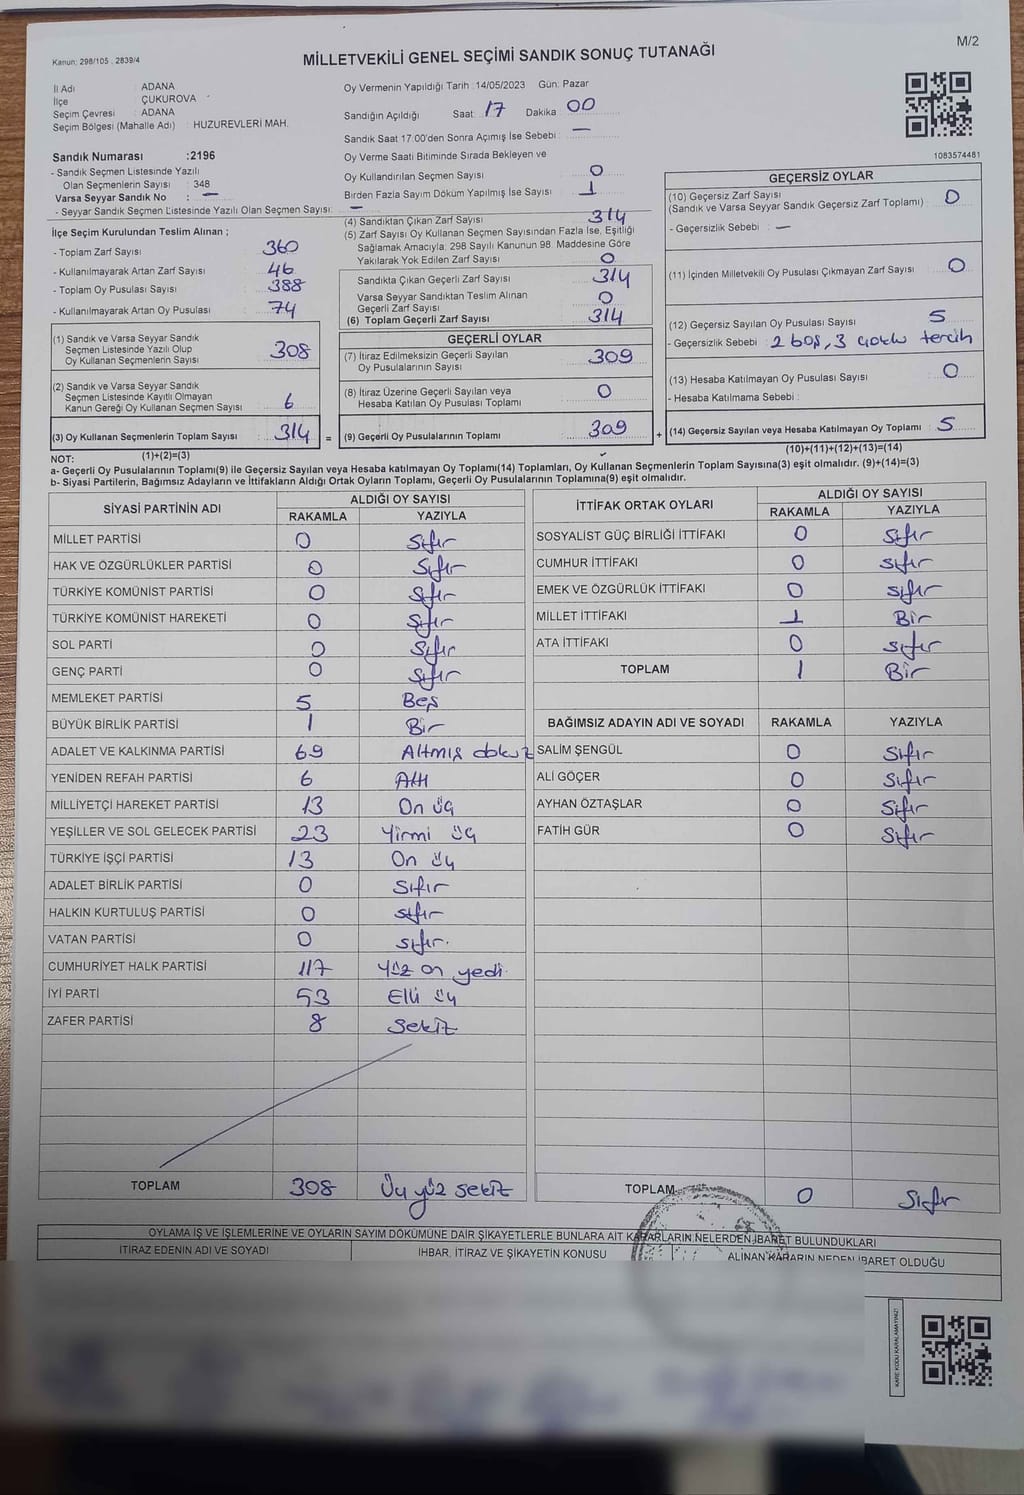 Kanun: 298/105 , 2839/4
MİLLETVEKİLİ GENEL SEÇİMİ SANDIK SONUÇ TUTANAĞI
M/2
İl Adı : ADANA
İlçe : ÇUKUROVA
Seçim Çevresi : ADANA
Seçim Bölgesi (Mahalle Adı) : HUZUREVLERİ MAH.
Sandık Numarası :2196
- Sandık Seçmen Listesinde Yazılı
Olan Seçmenlerin Sayısı : 348
Varsa Seyyar Sandık No : —
- Seyyar Sandık Seçmen Listesinde Yazılı Olan Seçmen Sayısı: —
Oy Vermenin Yapıldığı Tarih :14/05/2023 Gün: Pazar
Sandığın Açıldığı Saat: 17 Dakika 00
Sandık Saat 17:00'den Sonra Açımış İse Sebebi : —
Oy Verme Saati Bitiminde Sırada Bekleyen ve
Oy Kullandırılan Seçmen Sayısı 0
Birden Fazla Sayım Döküm Yapılmış İse Sayısı : 1
1083574481
İlçe Seçim Kurulundan Teslim Alınan ;
- Toplam Zarf Sayısı 360
- Kullanılmayarak Artan Zarf Sayısı 46
- Toplam Oy Pusulası Sayısı 388
- Kullanılmayarak Artan Oy Pusulası 74
(1) Sandık ve Varsa Seyyar Sandık
Seçmen Listesinde Yazılı Olup
Oy Kullanan Seçmenlerin Sayısı 308
(2) Sandık ve Varsa Seyyar Sandık
Seçmen Listesinde Kayıtlı Olmayan
Kanun Gereği Oy Kullanan Seçmen Sayısı 6
(3) Oy Kullanan Seçmenlerin Toplam Sayısı : 314 =
(4) Sandıktan Çıkan Zarf Sayısı 314
(5) Zarf Sayısı Oy Kullanan Seçmen Sayısından Fazla İse, Eşitliği
Sağlamak Amacıyla; 298 Sayılı Kanunun 98. Maddesine Göre
Yakılarak Yok Edilen Zarf Sayısı 0
Sandıkta Çıkan Geçerli Zarf Sayısı 314
Varsa Seyyar Sandıktan Teslim Alınan
Geçerli Zarf Sayısı 0
(6) Toplam Geçerli Zarf Sayısı 314
GEÇERLİ OYLAR
(7) İtiraz Edilmeksizin Geçerli Sayılan
Oy Pusulalarının Sayısı 309
(8) İtiraz Üzerine Geçerli Sayılan veya
Hesaba Katılan Oy Pusulası Toplamı 0
(9) Geçerli Oy Pusulalarının Toplamı 309 +
GEÇERSİZ OYLAR
(10) Geçersiz Zarf Sayısı
(Sandık ve Varsa Seyyar Sandık Geçersiz Zarf Toplamı) : 0
- Geçersizlik Sebebi : —
(11) İçinden Milletvekili Oy Pusulası Çıkmayan Zarf Sayısı 0
(12) Geçersiz Sayılan Oy Pusulası Sayısı 5
- Geçersizlik Sebebi : 2 boş, 3 çoklu tercih
(13) Hesaba Katılmayan Oy Pusulası Sayısı 0
- Hesaba Katılmama Sebebi :
(14) Geçersiz Sayılan veya Hesaba Katılmayan Oy Toplamı : 5
NOT: (1)+(2)=(3)
(10)+(11)+(12)+(13)=(14)
a- Geçerli Oy Pusulalarının Toplamı(9) ile Geçersiz Sayılan veya Hesaba katılmayan Oy Toplamı(14) Toplamları, Oy Kullanan Seçmenlerin Toplam Sayısına(3) eşit olmalıdır. (9)+(14)=(3)
b- Siyasi Partilerin, Bağımsız Adayların ve İttifakların Aldığı Ortak Oyların Toplamı, Geçerli Oy Pusulalarının Toplamına(9) eşit olmalıdır.
SİYASİ PARTİNİN ADI ALDIĞI OY SAYISI
RAKAMLA YAZIYLA
MİLLET PARTİSİ 0 Sıfır
HAK VE ÖZGÜRLÜKLER PARTİSİ 0 Sıfır
TÜRKİYE KOMÜNİST PARTİSİ 0 Sıfır
TÜRKİYE KOMÜNİST HAREKETİ 0 Sıfır
SOL PARTİ 0 Sıfır
GENÇ PARTİ 0 Sıfır
MEMLEKET PARTİSİ 5 Beş
BÜYÜK BİRLİK PARTİSİ 1 Bir
ADALET VE KALKINMA PARTİSİ 69 Altmış dokuz
YENİDEN REFAH PARTİSİ 6 Altı
MİLLİYETÇİ HAREKET PARTİSİ 13 On üç
YEŞİLLER VE SOL GELECEK PARTİSİ 23 Yirmi üç
TÜRKİYE İŞÇİ PARTİSİ 13 On üç
ADALET BİRLİK PARTİSİ 0 Sıfır
HALKIN KURTULUŞ PARTİSİ 0 sıfır
VATAN PARTİSİ 0 sıfır.
CUMHURİYET HALK PARTİSİ 117 Yüz on yedi.
İYİ PARTİ 53 Elli üç
ZAFER PARTİSİ 8 Sekiz
TOPLAM 308 Üç yüz sekiz
İTTİFAK ORTAK OYLARI ALDIĞI OY SAYISI
RAKAMLA YAZIYLA
SOSYALİST GÜÇ BİRLİĞİ İTTİFAKI 0 Sıfır
CUMHUR İTTİFAKI 0 sıfır
EMEK VE ÖZGÜRLÜK İTTİFAKI 0 sıfır
MİLLET İTTİFAKI 1 Bir
ATA İTTİFAKI 0 sıfır
TOPLAM 1 Bir
BAĞIMSIZ ADAYIN ADI VE SOYADI RAKAMLA YAZIYLA
SALİM ŞENGÜL 0 Sıfır
ALİ GÖÇER 0 Sıfır
AYHAN ÖZTAŞLAR 0 Sıfır
FATİH GÜR 0 Sıfır
TOPLAM 0 Sıfır
OYLAMA İŞ VE İŞLEMLERİNE VE OYLARIN SAYIM DÖKÜMÜNE DAİR ŞİKAYETLERLE BUNLARA AİT KARARLARIN NELERDEN İBARET BULUNDUKLARI
İTİRAZ EDENİN ADI VE SOYADI İHBAR, İTİRAZ VE ŞİKAYETİN KONUSU ALINAN KARARIN NEDEN İBARET OLDUĞU
KARE KODU KARALAMAYINIZ!